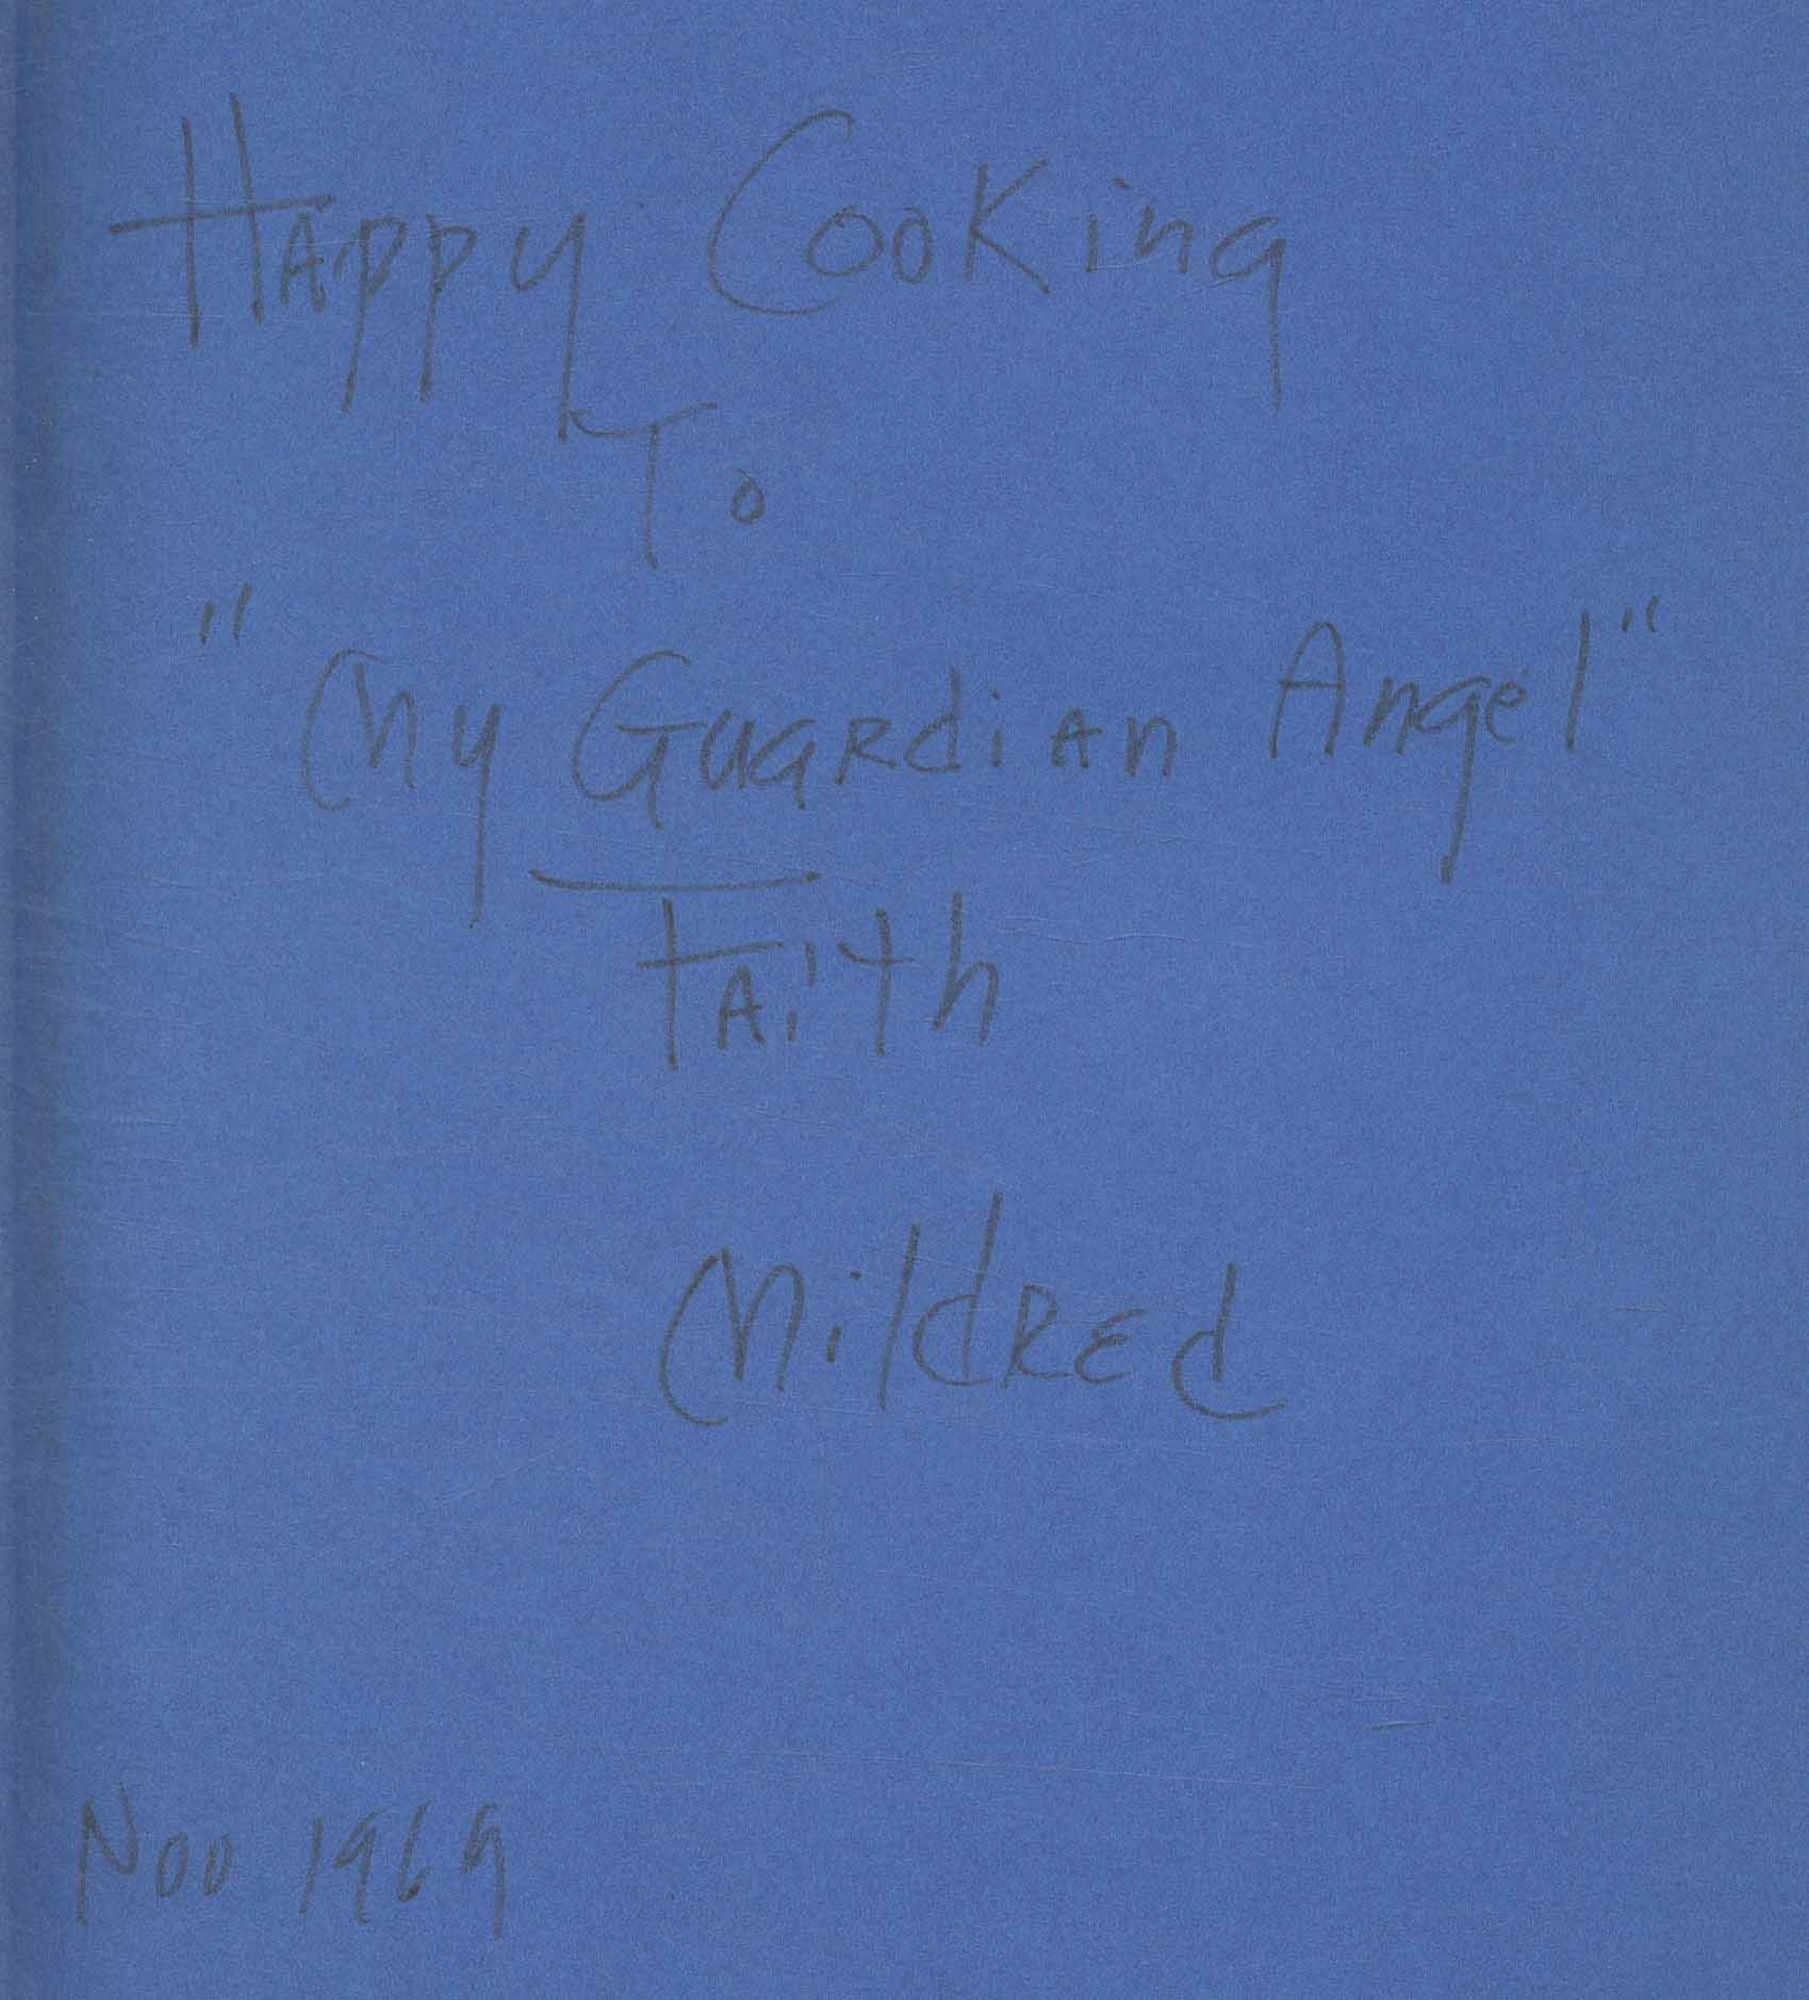 Happy Cooking
To
"My Guardian Angel"
Faith
Mildred
Nov 1969